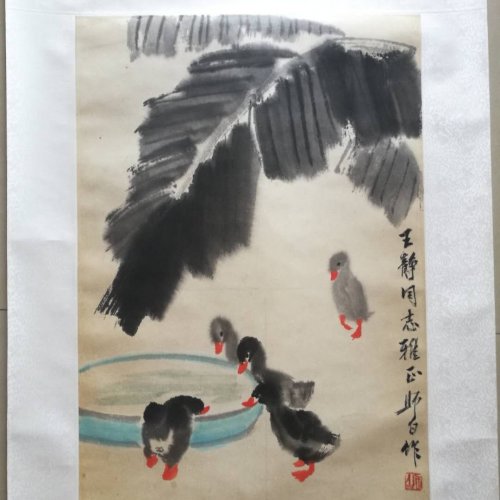 王静同志雅正娄师白作